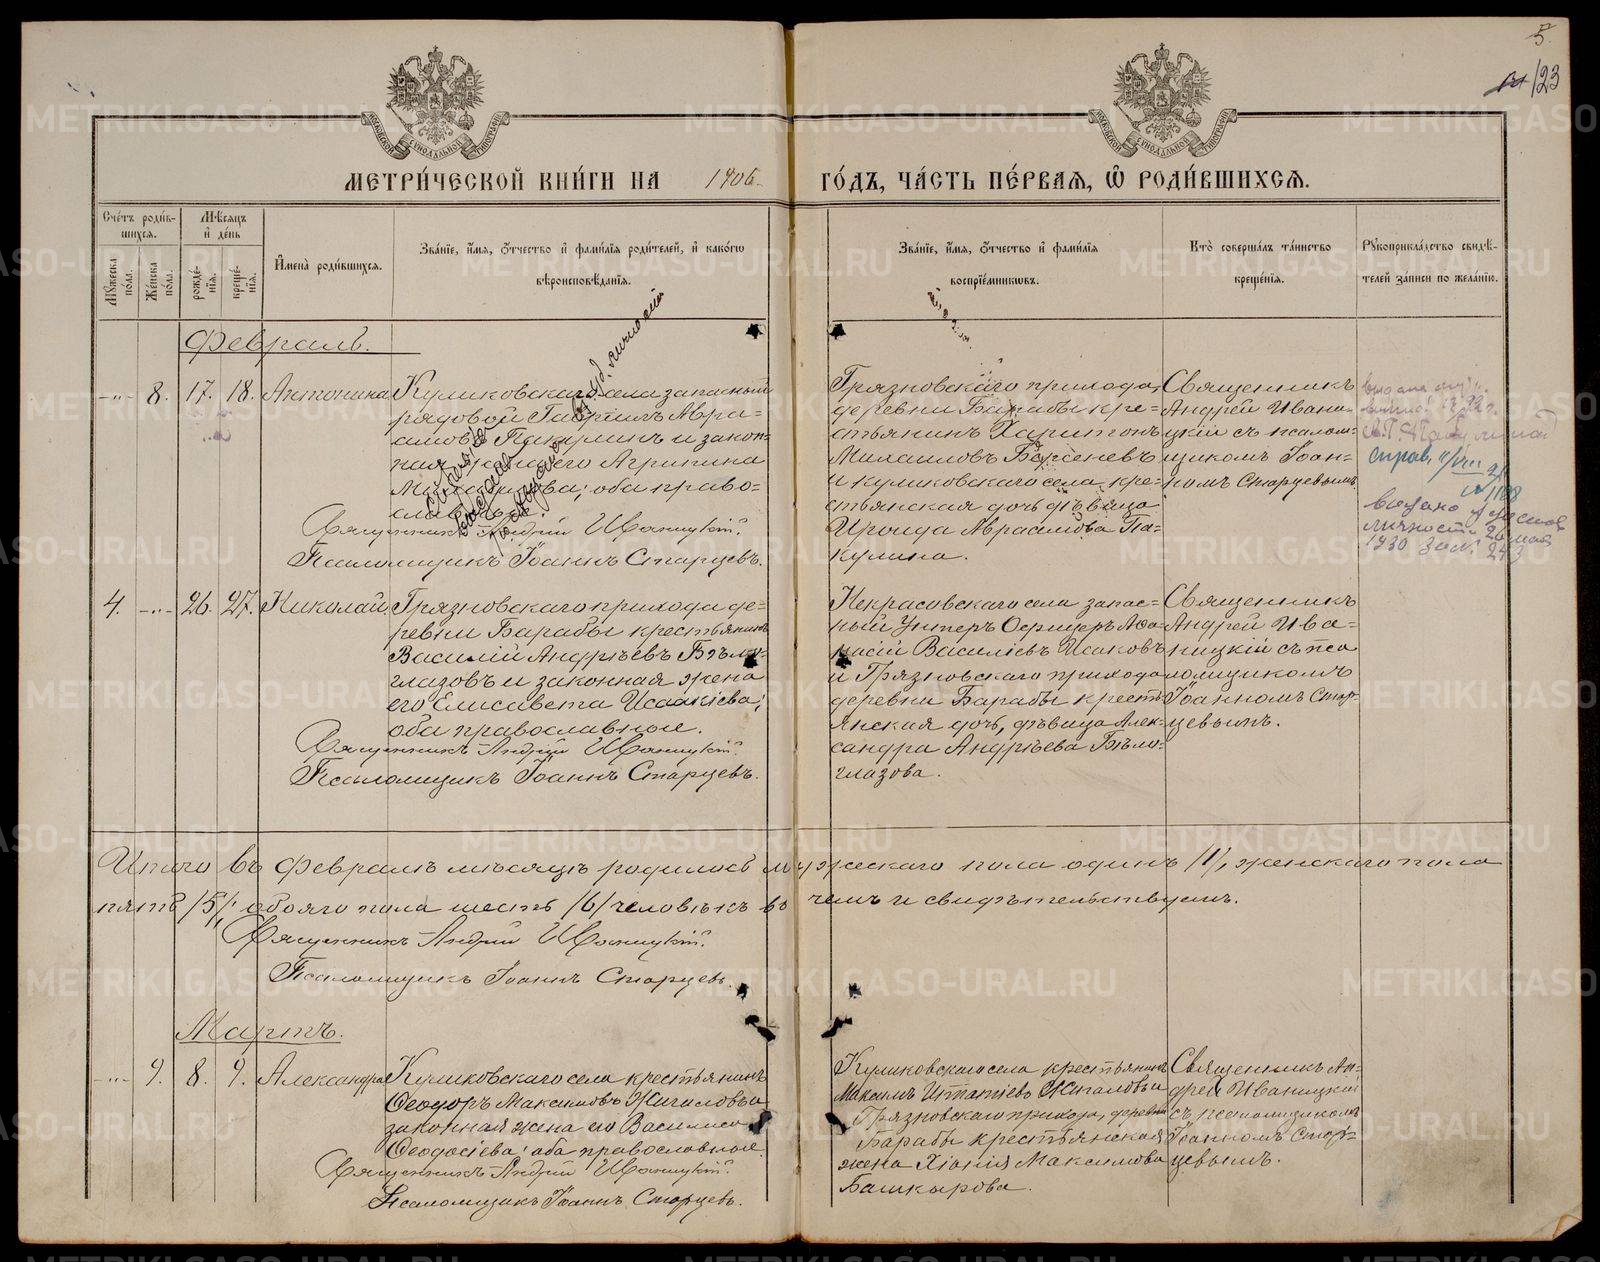 5.
123
МЕТРИ́ЧЕСКОЙ КНИ́ГИ НА 1906 ГО́ДЪ, ЧА́СТЬ ПЕ́РВАЯ, Ѡ РОДИ́ВШИХСЯ.
Сче́тъ роди́в-
шихся.
Мꙋ́жеска по́ла.
Же́нска по́ла.
Мѣ́сяцъ
и҆ де́нь
рожде́-
нїя.
креще́-
нїя.
И҆мена̀ роди́вшихся.
Зва́нїе, и҆́мя, ѻ҆́тчество и҆ фами́лїя роди́телей, и҆ како́гѡ
вѣроисповѣ́данїя.
Зва́нїе, и҆́мя, ѻ҆́тчество и҆ фами́лїя
воспрїе́мникѡвъ.
Кто̀ соверша́лъ та́инство
креще́нїя.
Рꙋкоприкла́дство свидѣ́-
телей за́писи по жела́нїю.
Февраль.
-"- 8. 17. 18. Антонина
Куликовскаго села запасный
рядовой Гавріилъ Авра-
амовъ Пакулинъ и закон-
ная жена его Агрипина
оба право-
славные.
Священникъ Андрей Иваницкій.
Псаломщикъ Іоаннъ Старцевъ.
Грязновскаго прихода,
деревни Барабы кре-
стьянинъ Харитонъ
Михаиловъ
и куликовскаго села кре-
стьянская дочь дѣвица
Ираида Авраамова Па-
кулина.
Священникъ
Андрей Ивани-
цкій съ псалом-
щикомъ Іоан-
номъ Старцевымъ
справ.
выдано
личности
1930
4. -"- 26. 27. Николай
Грязновскаго прихода де-
ревни Барабы крестьянинъ
Василій Андріевъ Бѣло-
глазовъ и законная жена
его Елисавета Исаакіева;
оба православные.
Священникъ Андрей Иваницкій.
Псаломщикъ Іоаннъ Старцевъ.
Некрасовскаго села запас-
ный Унтеръ Офицеръ Афа-
насій Василіевъ Исаковъ
и Грязновскаго прихода
деревни Барабы кресть-
янская дочь, дѣвица Алек-
сандра Андріева Бѣло-
глазова.
Священникъ
Андрей Ива-
ницкій съ пса
ломщикомъ
Іоанномъ Стар-
цевымъ.
Итого въ Февралѣ мѣсяцѣ родилось мужескаго пола одинъ /1/, женскаго пола
пять /5/, обоего пола шесть /6/ человѣкъ въ чемъ и свидѣтельствуемъ.
Священникъ Андрей Иваницкій.
Псаломщикъ Іоаннъ Старцевъ.
Мартъ.
-"- 9. 8. 9. Александра
Куликовскаго села крестьянинъ
Ѳеодоръ Максимовъ Жигаловъ и
законная жена его Василиса
Ѳеодосіева; оба православные.
Священникъ Андрей Иваницкій.
Псаломщикъ Іоаннъ Старцевъ.
Куликовскаго села крестьянинъ
Максимъ Игнатіевъ Жигаловъ и
Грязновскаго прихода, деревни
Барабы крестьянская
жена Хіонія Максимова
Башкырова.
Священникъ Ан-
дрей Иваницкій
съ псаломщикомъ
Іоанномъ Стар-
цевымъ.
METRIKI.GASO-URAL.RU